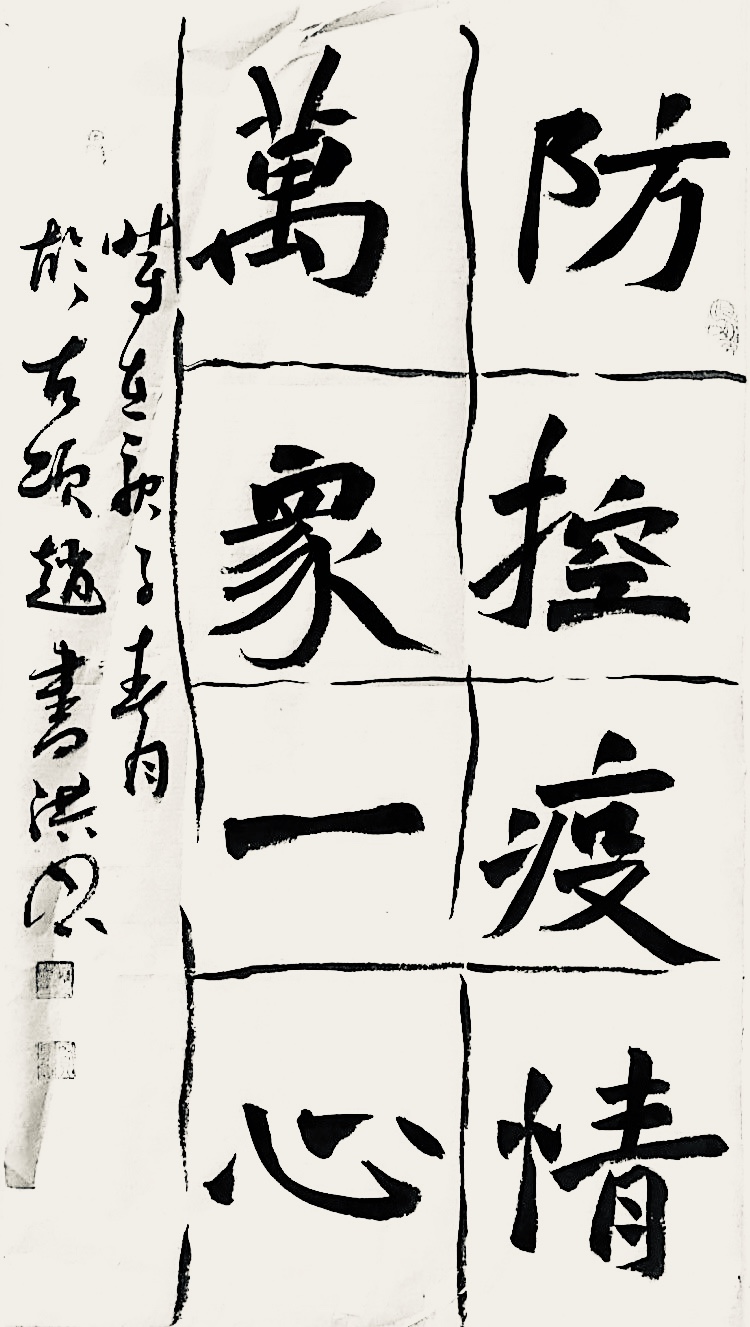 防控疫情
萬衆一心
時在庚子春月
於古項趙書洪